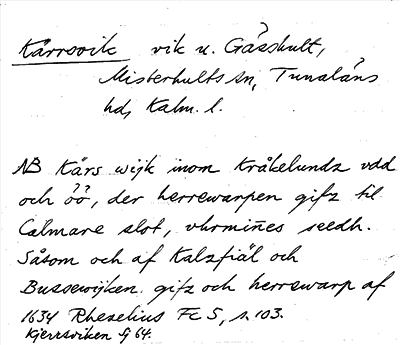 Kårsvik vik u. Gåsshult,
Misterhults sn, Tunaläns
hd, Kalm. l.
NB Kårs wijk inom Kråkelundz udd
och öö, der herrewarpen gifz til
Calmare slot, uhrmiñes seedh.
Såsom och af Kalzfiäl och
Bussewijken gifz och herrewarp af
1634 Rhezelius Fc 5, s. 103.
Kjerrsviken G 64.